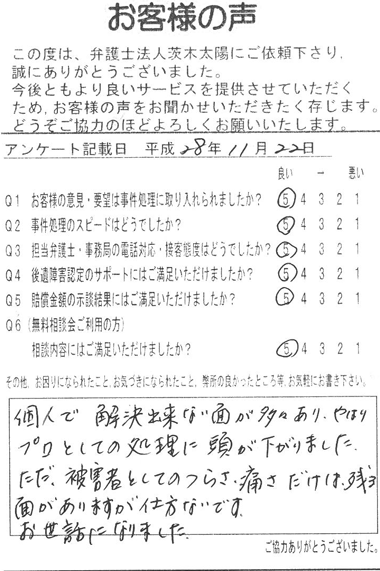 お客様の声
この度は、弁護士法人茨木太陽にご依頼下さり、
誠にありがとうございました。
今後ともより良いサービスを提供させていただく
ため、お客様の声をお聞かせいただきたく存じます。
どうぞご協力のほどよろしくお願いいたします。
アンケート記載日 平成 28年 11月 22日
良い → 悪い
Q1 お客様の意見・要望は事件処理に取り入れられましたか? 5 4 3 2 1
Q2 事件処理のスピードはどうでしたか? 5 4 3 2 1
Q3 担当弁護士・事務局の電話対応・接客態度はどうでしたか? 5 4 3 2 1
Q4 後遺障害認定のサポートにはご満足いただけましたか? 5 4 3 2 1
Q5 賠償金額の示談結果にはご満足いただけましたか? 5 4 3 2 1
Q6 (無料相談会ご利用の方)
相談内容にはご満足いただけましたか? 5 4 3 2 1
その他、お困りになられたこと、お気づきになられたこと、弊所の良かったところ等、お気軽にお書き下さい。
個人で 解決出来ない面が多々あり、やはり
プロとしての処理に頭が下がりました。
ただ、被害者としてのつらさ・痛さだけは、残る
面がありますが仕方ないです。
お世話になりました。
ご協力ありがとうございました。